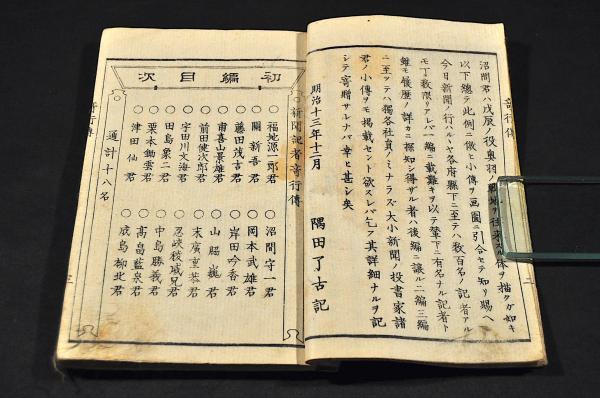 奇行傳
沼間君ハ戊辰ノ役奥羽ノ戦地ヲ往来スル体ヲ描クガ如キ
以下總テ此例ニ倣ヒ小傳ヲ画圖ニ引合セテ知リ賜ヘ
今日新聞ノ行ハルヽヤ各府縣下ニ至テハ数百名ノ記者アル
モ丁数限リアレバ一編ニ載難キヲ以テ輦下ニ有名ナル記者ト
雖モ履歴ノ詳カニ探知シ得ザル者ハ後編ニ譲ル二編三編
ニ至ツテハ獨各社員ノミナラズ大小新聞ノ投書家諸
君ノ小傳ヲモ掲載セント欲スレバ乞フ其詳細ナルヲ記
シテ寄贈サレナバ幸ヒ甚シ矣
明治十三年十二月 隅田了古記
初編目次
新聞記者奇行傳
○福地源一郎君 ○沼間守一君
○關新吾君 ○岡本武雄君
○藤田茂吉君 ○岸田吟香君
○甫喜山景雄君 ○山脇巍君
○前田健次郎君 ○末廣重恭君
○宇田川文海君 ○忍峡稜威兄君
○田島象二君 ○中島勝義君
○栗本鋤雲君 ○高畠藍泉君
○津田仙君 ○成島柳北君
通計十八名
奇行傳